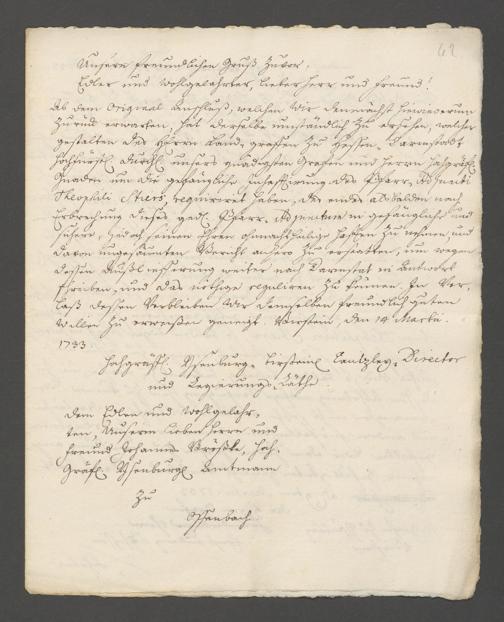 62
Unsern freundlichen Gruß zuvor.
Edler und Wohlgelahrter, lieber Herr und Freund!
Ab dem Original Anschluß, welchen wir demnächst hinwiederum
zurück erwarten, hat derselbe umständlich zu ersehen, welcher
gestalten des Herrn Land-graffen zu Hessen-Darmstadt
Hochfürstl. Durchl. unsers gnädigsten Grafen und Herrn Hochgräfl.
Gnaden um die gefängliche inhafftirung des Pfarr-Adjuncti
Theophili requiriret haben, der ende alsbalden nach
Erbrechung dieses gedl. Pfarr-Adjunctum in gefängliche und
sichere, jedoch seinen Ihren Hafften zu nehmen und
davon ungesäumten Bericht anhero zu erstatten, um wegen
dessen Außliefferung weiter nach Darmstat in Antwort
schreiben, und das nöthige reguliren zu können. In Ver-
laß dessen Verbleiben wir demselben freundlich guten
Willen zu erweißen geneigt. Birstein, den 14 Martii
1733.
Hochgräffl. Ysenburg-Birsteinl. Cantzley-Director
und Regierungs-Räthe
Dem Edlen und Wohlgelahr-
ten, Unserm lieben Herrn und
Freund Johann Hoch-
Gräfl. Ysenburgl. Amtmann
zu
Offenbach